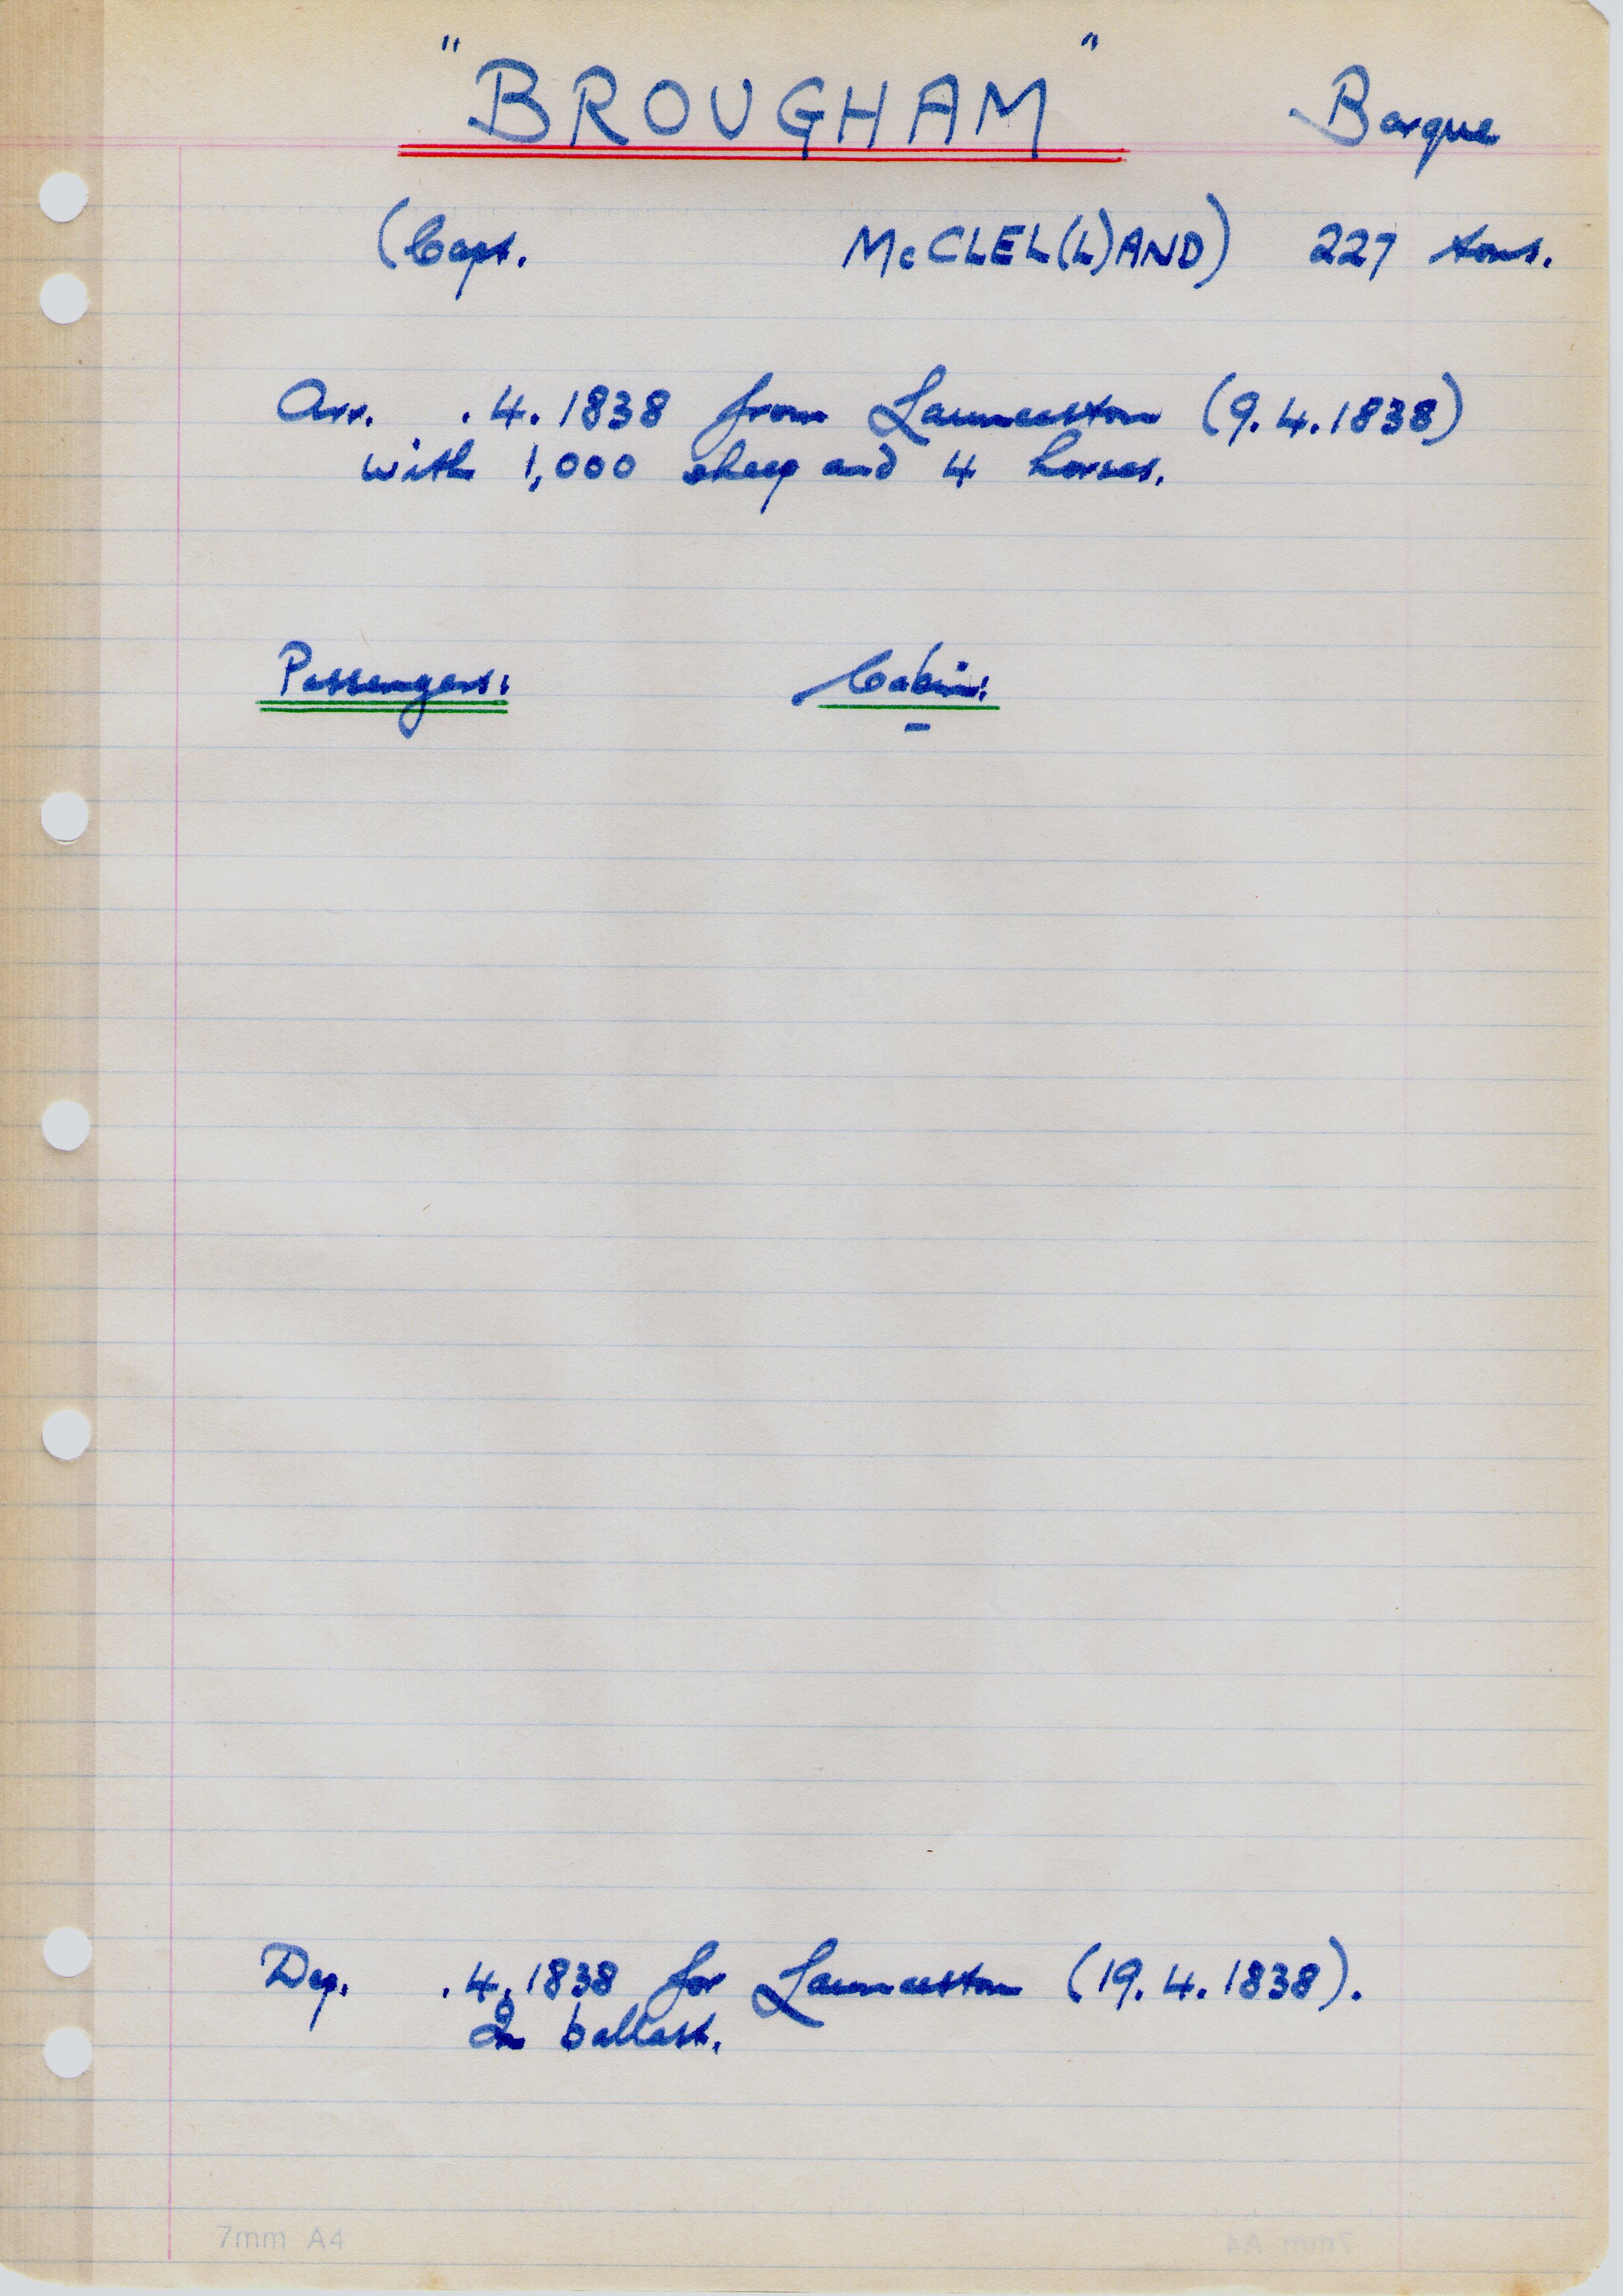 "BROUGHAM" Barque
(Capt. McCLEL(L)AND) 227 tons.
Arr. .4.1838 from Launceston (9.4.1838)
with 1,000 sheep and 4 horses.
Passengers: Cabin:
-
Dep. .4.1838 for Launceston (19.4.1838).
In ballast.
7mm A4